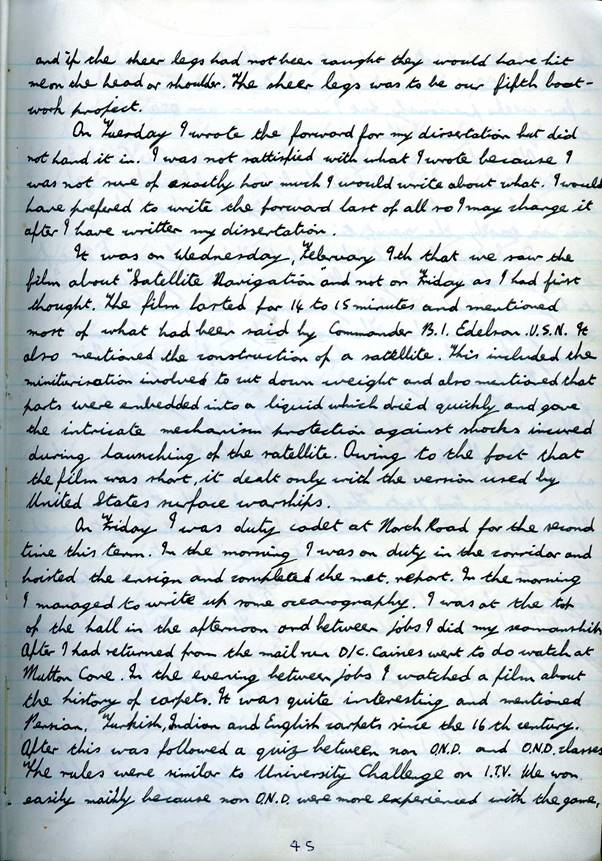 and if the sheer legs had not been caught they would have hit
me on the head or shoulder. The sheer legs was to be our fifth boat-
work project.
On Tuesday I wrote the forward for my dissertation but did
not hand it in. I was not sattisfied with what I wrote because I
was not sure of exactly how much I would write about what. I would
have prefered to write the forward last of all so I may change it
after I have written my dissertation.
It was on Wednesday, February 9th that we saw the
film about "Satellite Navigation" and not on Friday as I had first
thought. The film lasted for 14 to 15 minutes and mentioned
most of what had been said by Commander B.I. Edelson. U.S.N. It
also mentioned the construction of a satellite. This included the
miniturisation involved to cut down weight and also mentioned that
parts were embedded into a liquid which dried quickly and gave
the intricate mechanism protection against shocks incured
during launching of the satellite. Owing to the fact that
the film was short, it dealt only with the version used by
United States surface warships.
On Friday I was duty cadet at North Road for the second
time this term. In the morning I was on duty in the corridor and
hoisted the ensign and completed the met. report. In the morning
I managed to write up some oceanography. I was at the top
of the hall in the afternoon and between jobs I did my seamanship.
After I had returned from the mail run D/C. Caines went to do watch at
Mutton Cove. In the evening between jobs I watched a film about
the history of carpets. It was quite interesting and mentioned
Persian, Turkish, Indian and English carpets since the 16th century.
After this was followed a quiz between non O.N.D. and O.N.D. classes
The rules were similar to University Challenge on I.T.V. We won
easily mainly because non O.N.D. were more experienced with the game,
45